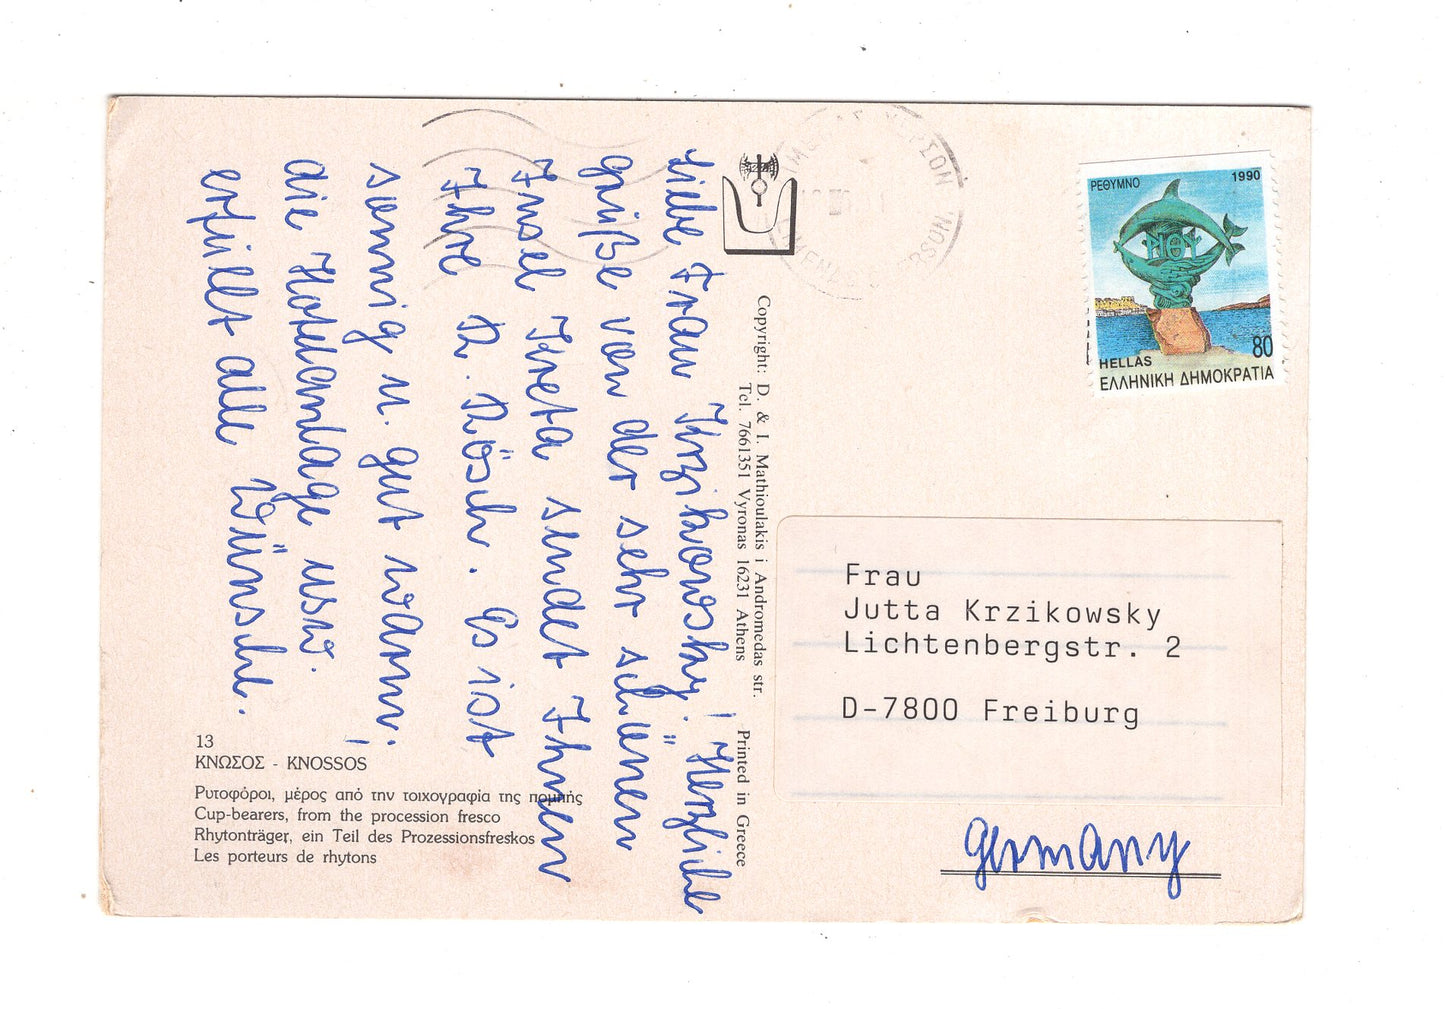 Liebe Frau Krzikowsky! Herzliche
Grüße von der sehr schönen
Insel Kreta sendet Ihnen
Ihre R. Rösch. Es ist
sonnig u. gut warm,
die Hotelanlage usw.
erfüllt alle Wünsche.
13
ΚΝΩΣΟΣ - KNOSSOS
Ρυτοφόροι, μέρος από την τοιχογραφία της πομπής
Cup-bearers, from the procession fresco
Rhytonträger, ein Teil des Prozessionsfreskos
Les porteurs de rhytons
Copyright: D. & I. Mathioulakis i Andromedas str.
Tel. 7661351 Vyronas 16231 Athens Printed in Greece
ΡΕΘΥΜΝΟ 1990
80
HELLAS
ΕΛΛΗΝΙΚΗ ΔΗΜΟΚΡΑΤΙΑ
Frau
Jutta Krzikowsky
Lichtenbergstr. 2
D-7800 Freiburg
Germany